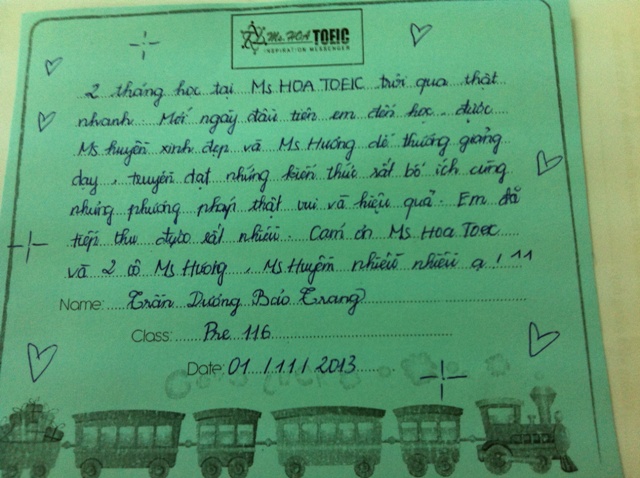 Ms. HOA TOEIC
INSPIRATION MESSENGER
2 tháng học tại Ms HOA TOEIC trôi qua thật
nhanh. Mới ngày đầu tiên em đến học, được
Ms Huyền xinh đẹp và Ms Hương dễ thương giảng
dạy, truyền đạt những kiến thức rất bổ ích cùng
những phương pháp thật vui và hiệu quả. Em đã
tiếp thu được rất nhiều. Cám ơn Ms Hoa Toeic
và 2 cô Ms Hương, Ms Huyền nhiều nhiều ạ! ^^
Name: Trần Dương Bảo Trang
Class: Pre 116
Date: 01 /11/ 2013